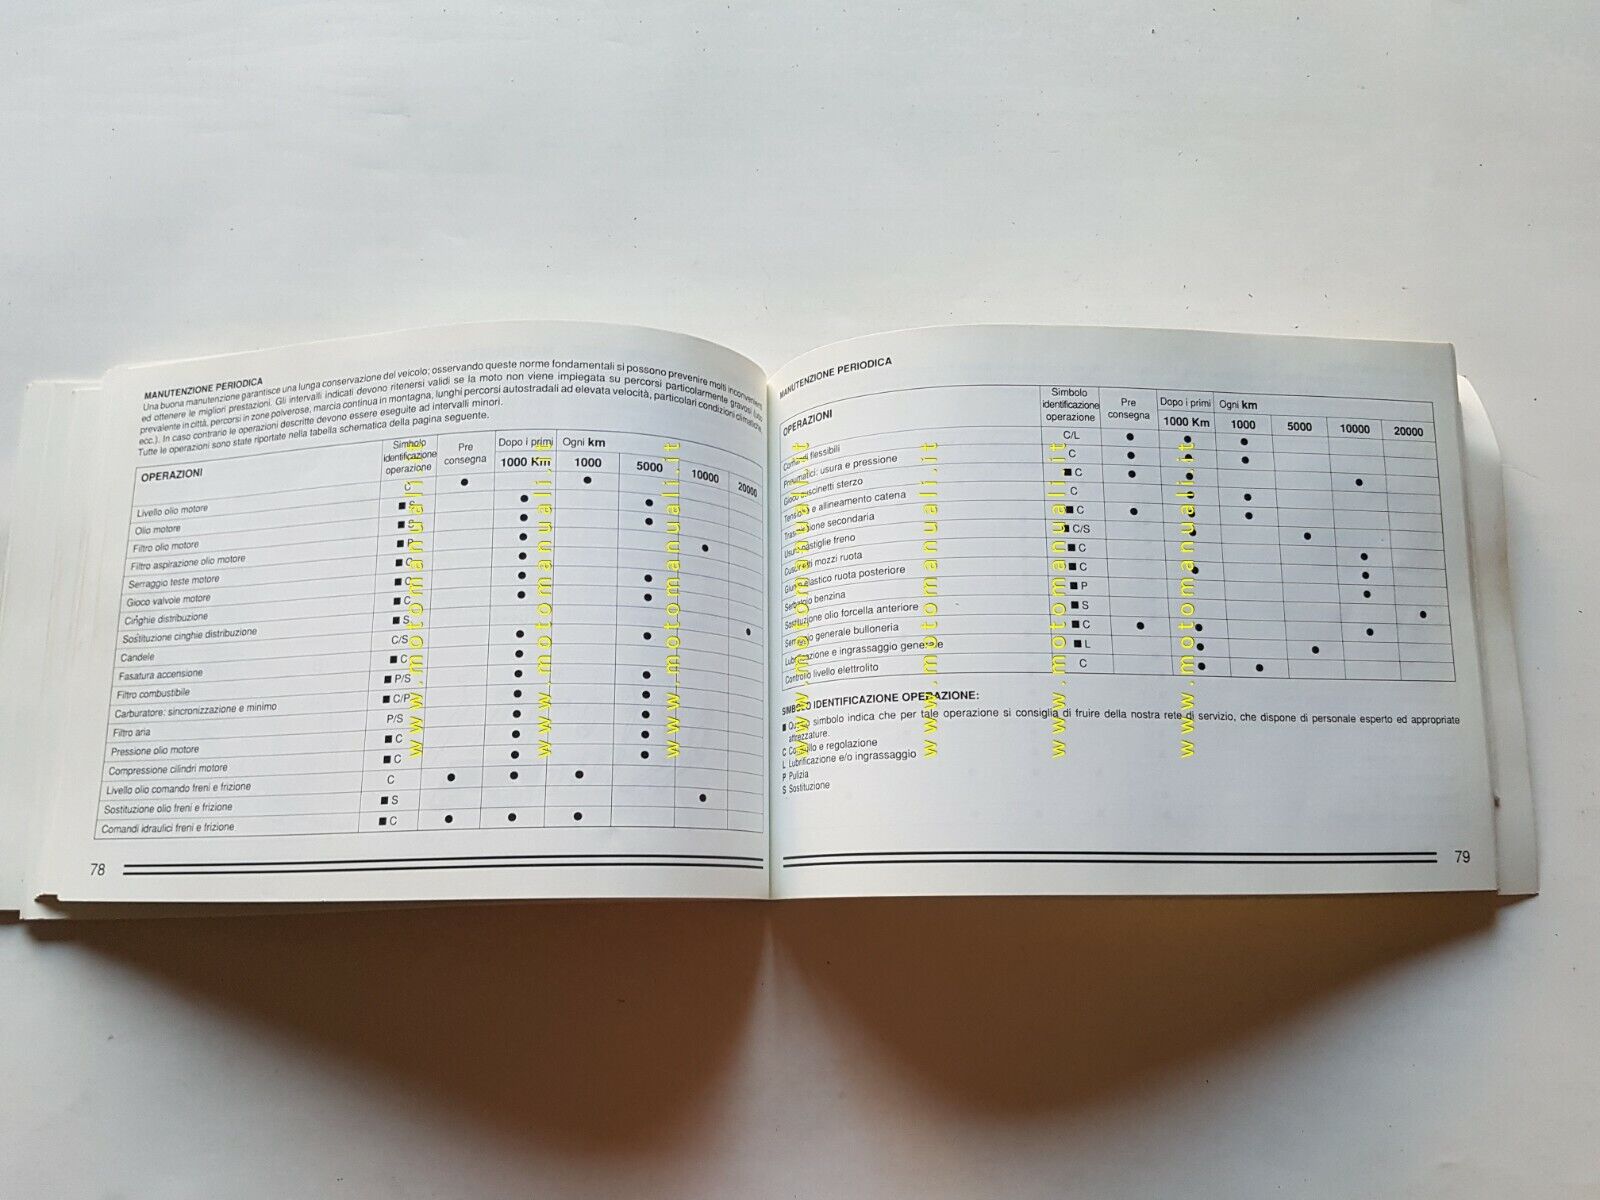 MANUTENZIONE PERIODICA
Una buona manutenzione garantisce una lunga conservazione del veicolo; osservando queste norme fondamentali si possono prevenire molti inconvenienti
ed ottenere le migliori prestazioni. Gli intervalli indicati devono ritenersi validi se la moto non viene impiegata su percorsi particolarmente gravosi (uso
prevalente in città, percorsi in zone polverose, marcia continua in montagna, lunghi percorsi autostradali ad elevata velocità, particolari condizioni climatiche,
ecc.). In caso contrario le operazioni descritte devono essere eseguite ad intervalli minori.
Tutte le operazioni sono state riportate nella tabella schematica della pagina seguente.
OPERAZIONI Simbolo identificazione operazione Pre consegna Dopo i primi 1000 Km Ogni km 1000 5000 10000 20000
Livello olio motore C ● ●
Olio motore ■ S ● ●
Filtro olio motore ■ S ● ●
Filtro aspirazione olio motore ■ P ● ●
Serraggio teste motore ■ C ●
Gioco valvole motore ■ C ● ●
Cinghie distribuzione ■ C ● ●
Sostituzione cinghie distribuzione ■ S ●
Candele C/S ● ●
Fasatura accensione ■ C ●
Filtro combustibile ■ P/S ● ●
Carburatore: sincronizzazione e minimo ■ C/P ● ●
Filtro aria P/S ● ●
Pressione olio motore ■ C ● ●
Compressione cilindri motore ■ C ● ●
Livello olio comando freni e frizione C ● ● ●
Sostituzione olio freni e frizione ■ S ●
Comandi idraulici freni e frizione ■ C ● ● ●
78
MANUTENZIONE PERIODICA
OPERAZIONI Simbolo identificazione operazione Pre consegna Dopo i primi 1000 Km Ogni km 1000 5000 10000 20000
Comandi flessibili C/L ● ● ●
Pneumatici: usura e pressione C ● ● ●
Gioco cuscinetti sterzo ■ C ● ● ●
Tensione e allineamento catena C ● ●
Trasmissione secondaria ■ C ● ● ●
Usura pastiglie freno ■ C/S ● ●
Cuscinetti mozzi ruota ■ C ●
Giunto elastico ruota posteriore ■ C ● ●
Serbatoio benzina ■ P ●
Sostituzione olio forcella anteriore ■ S ●
Serraggio generale bulloneria ■ C ● ● ●
Lubrificazione e ingrassaggio generale ■ L ● ●
Controllo livello elettrolito C ● ●
SIMBOLO IDENTIFICAZIONE OPERAZIONE:
■ Questo simbolo indica che per tale operazione si consiglia di fruire della nostra rete di servizio, che dispone di personale esperto ed appropriate
attrezzature.
C Controllo e regolazione
L Lubrificazione e/o ingrassaggio
P Pulizia
S Sostituzione
79
www.motomanuali.it
www.motomanuali.it
www.motomanuali.it
www.motomanuali.it
www.motomanuali.it
www.motomanuali.it
www.motomanuali.it